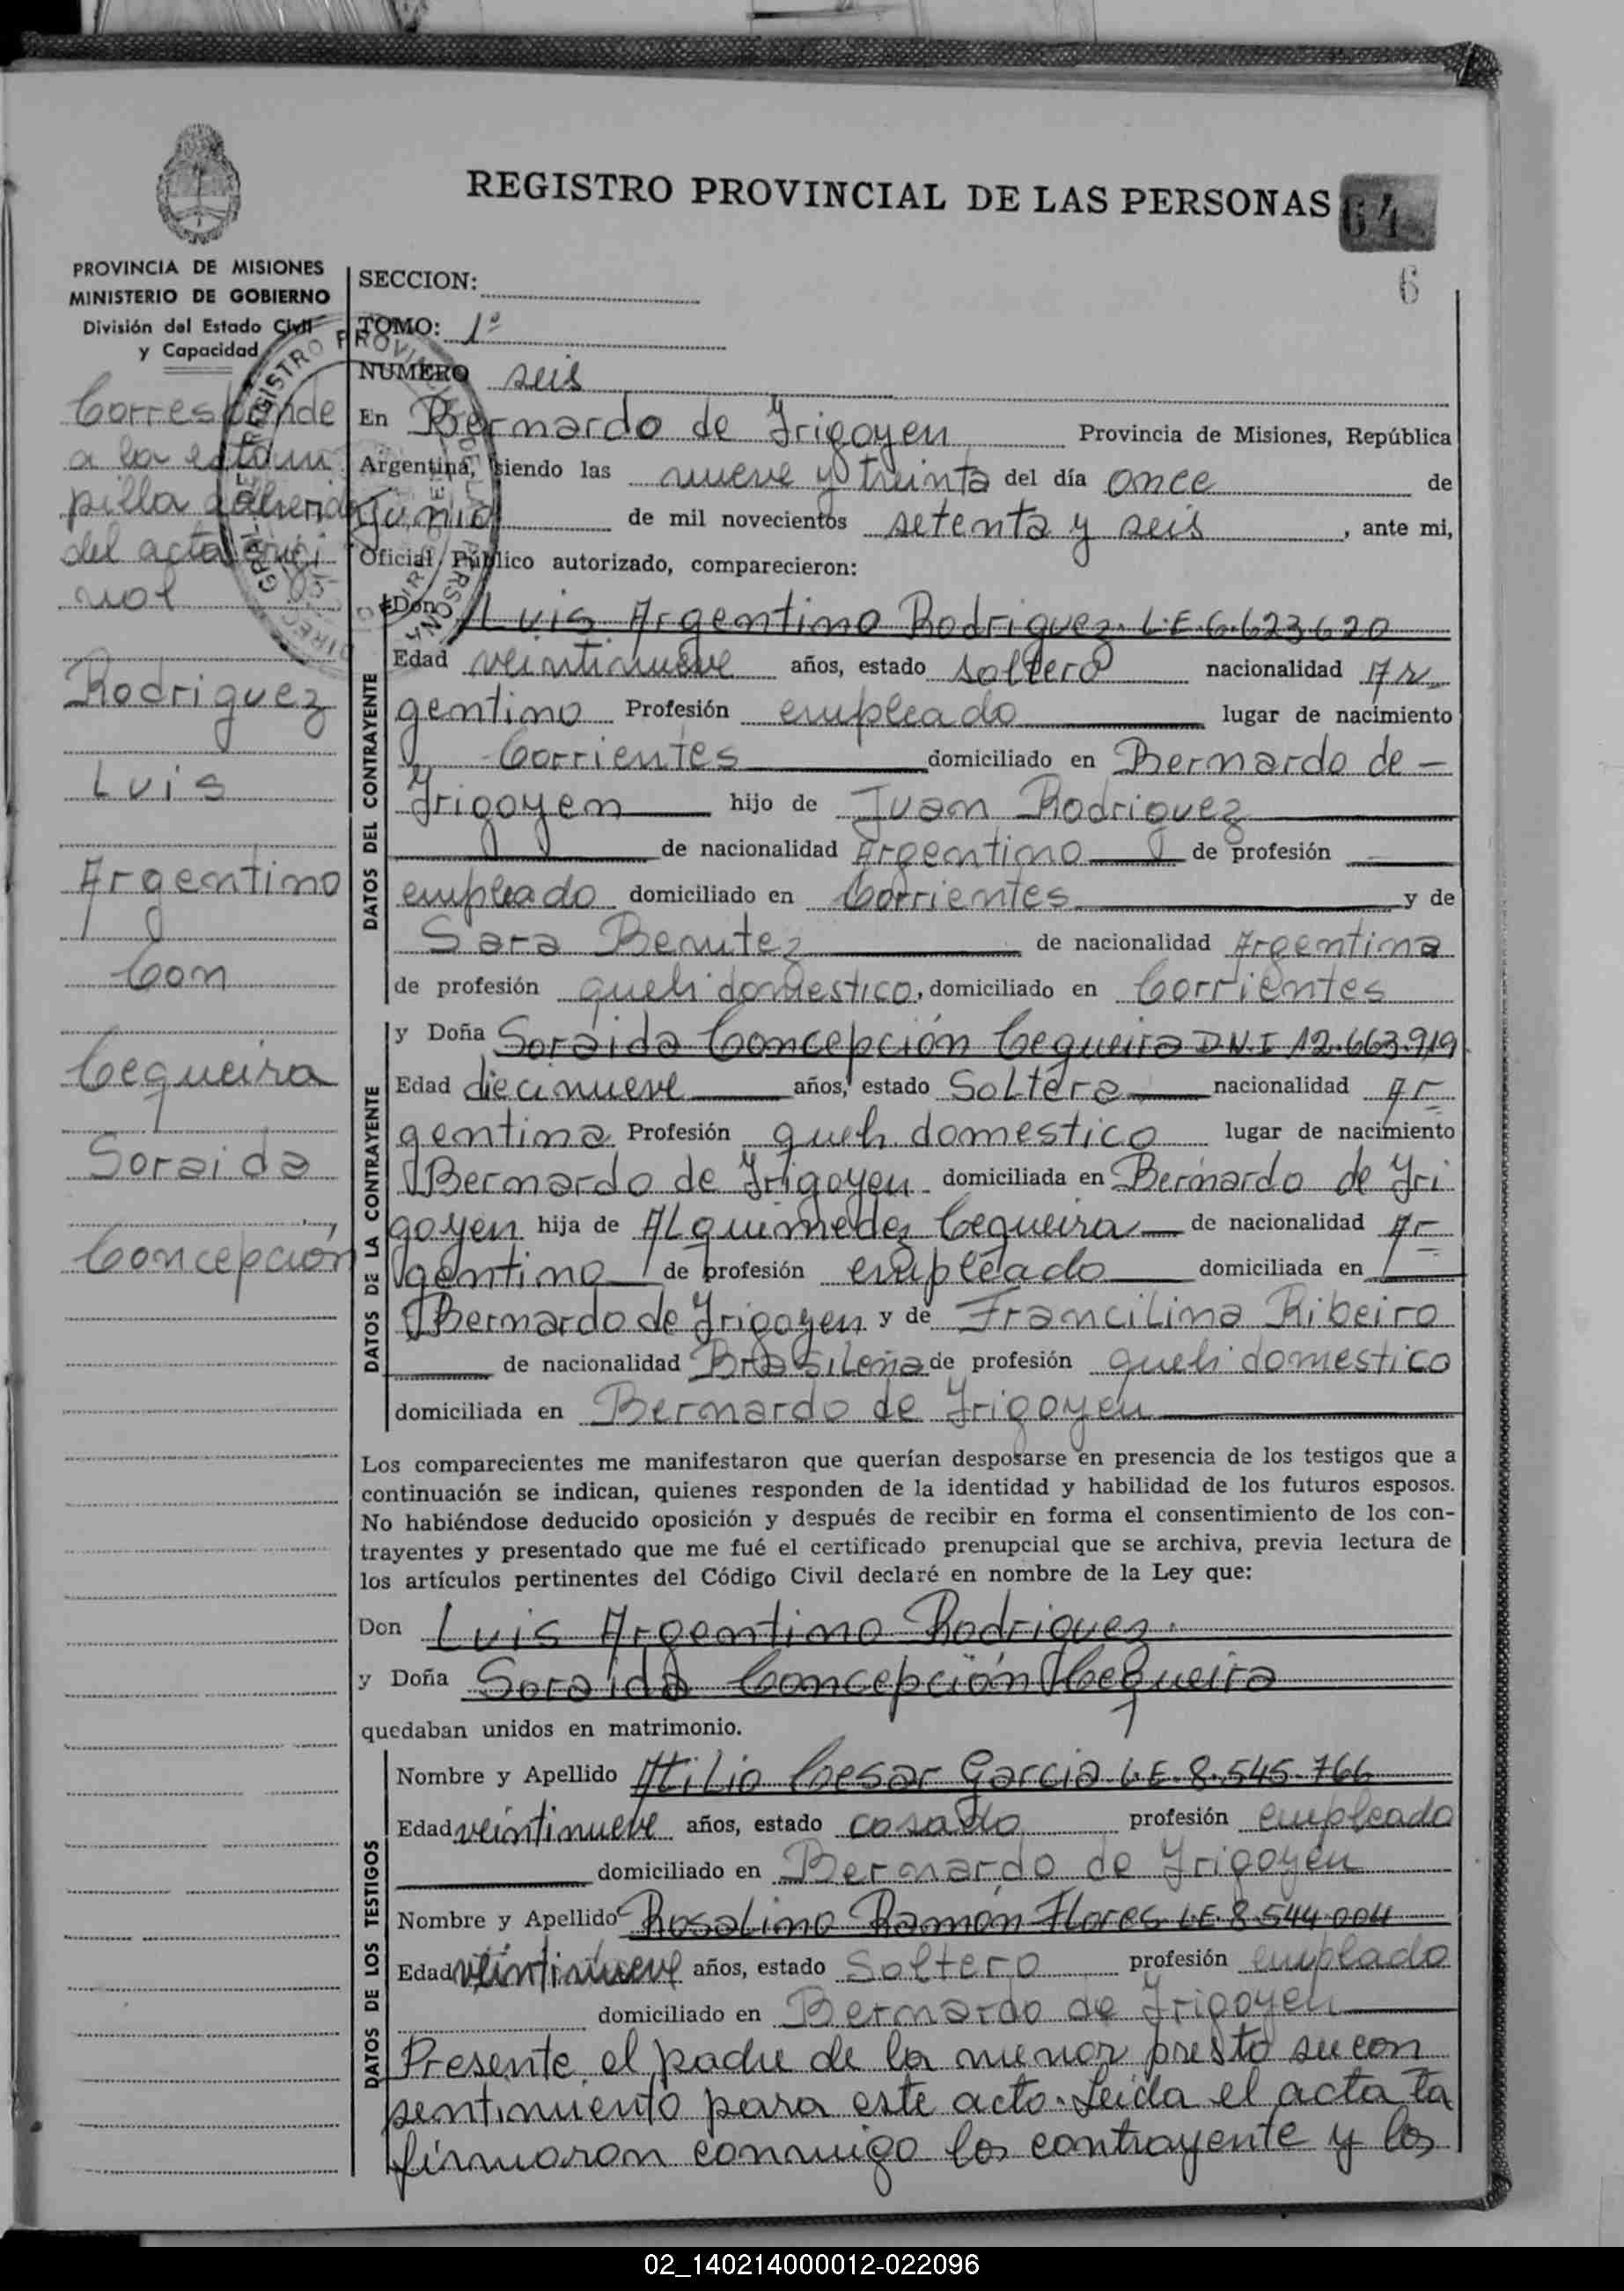 REGISTRO PROVINCIAL DE LAS PERSONAS
64
6
PROVINCIA DE MISIONES
MINISTERIO DE GOBIERNO
División del Estado Civil
y Capacidad
Corresponde
a la estam
pilla adherida
del acta origi
nal
Rodriguez
Luis
Argentino
Con
Cequeira
Soraida
Concepción
SECCION:
TOMO: 1º
NUMERO seis
En Bernardo de Irigoyen Provincia de Misiones, República
Argentina, siendo las nueve y treinta del día once de
Junio de mil novecientos setenta y seis, ante mi,
Oficial Público autorizado, comparecieron:
DATOS DEL CONTRAYENTE
Don Luis Argentino Rodriguez. L.E. 6.623620
Edad veintinueve años, estado soltero nacionalidad Ar
gentino Profesión empleado lugar de nacimiento
Corrientes domiciliado en Bernardo de -
Irigoyen hijo de Juan Rodriguez
de nacionalidad Argentino de profesión
empleado domiciliado en Corrientes y de
Sara Benitez de nacionalidad Argentina
de profesión queh domestico, domiciliado en Corrientes
DATOS DE LA CONTRAYENTE
y Doña Soraida Concepción Cequeira D.N.I 12.663.919
Edad diecinueve años, estado Soltera nacionalidad Ar
gentina Profesión queh domestico lugar de nacimiento
Bernardo de Irigoyen domiciliada en Bernardo de Iri
goyen hija de ALquimedez Cequeira de nacionalidad Ar
gentino de profesión empleado domiciliada en
Bernardo de Irigoyen y de Francilina Ribeiro
de nacionalidad Brasileña de profesión queh domestico
domiciliada en Bernardo de Irigoyen
Los comparecientes me manifestaron que querían desposarse en presencia de los testigos que a
continuación se indican, quienes responden de la identidad y habilidad de los futuros esposos.
No habiéndose deducido oposición y después de recibir en forma el consentimiento de los con-
trayentes y presentado que me fué el certificado prenupcial que se archiva, previa lectura de
los artículos pertinentes del Código Civil declaré en nombre de la Ley que:
Don Luis Argentino Rodriguez.
y Doña Soraida Concepción Cequeira
quedaban unidos en matrimonio.
DATOS DE LOS TESTIGOS
Nombre y Apellido Atilio Cesar Garcia L.E. 8.545.766
Edad veintinueve años, estado casado profesión empleado
domiciliado en Bernardo de Irigoyen
Nombre y Apellido Rosalino Ramón Flores L.E. 8.544.004
Edad veintinueve años, estado Soltero profesión empleado
domiciliado en Bernardo de Irigoyen
Presente el padre de la menor presto su con
sentimiento para este acto. Leida el acta la
firmaron conmigo los contrayente y los
02_140214000012-022096